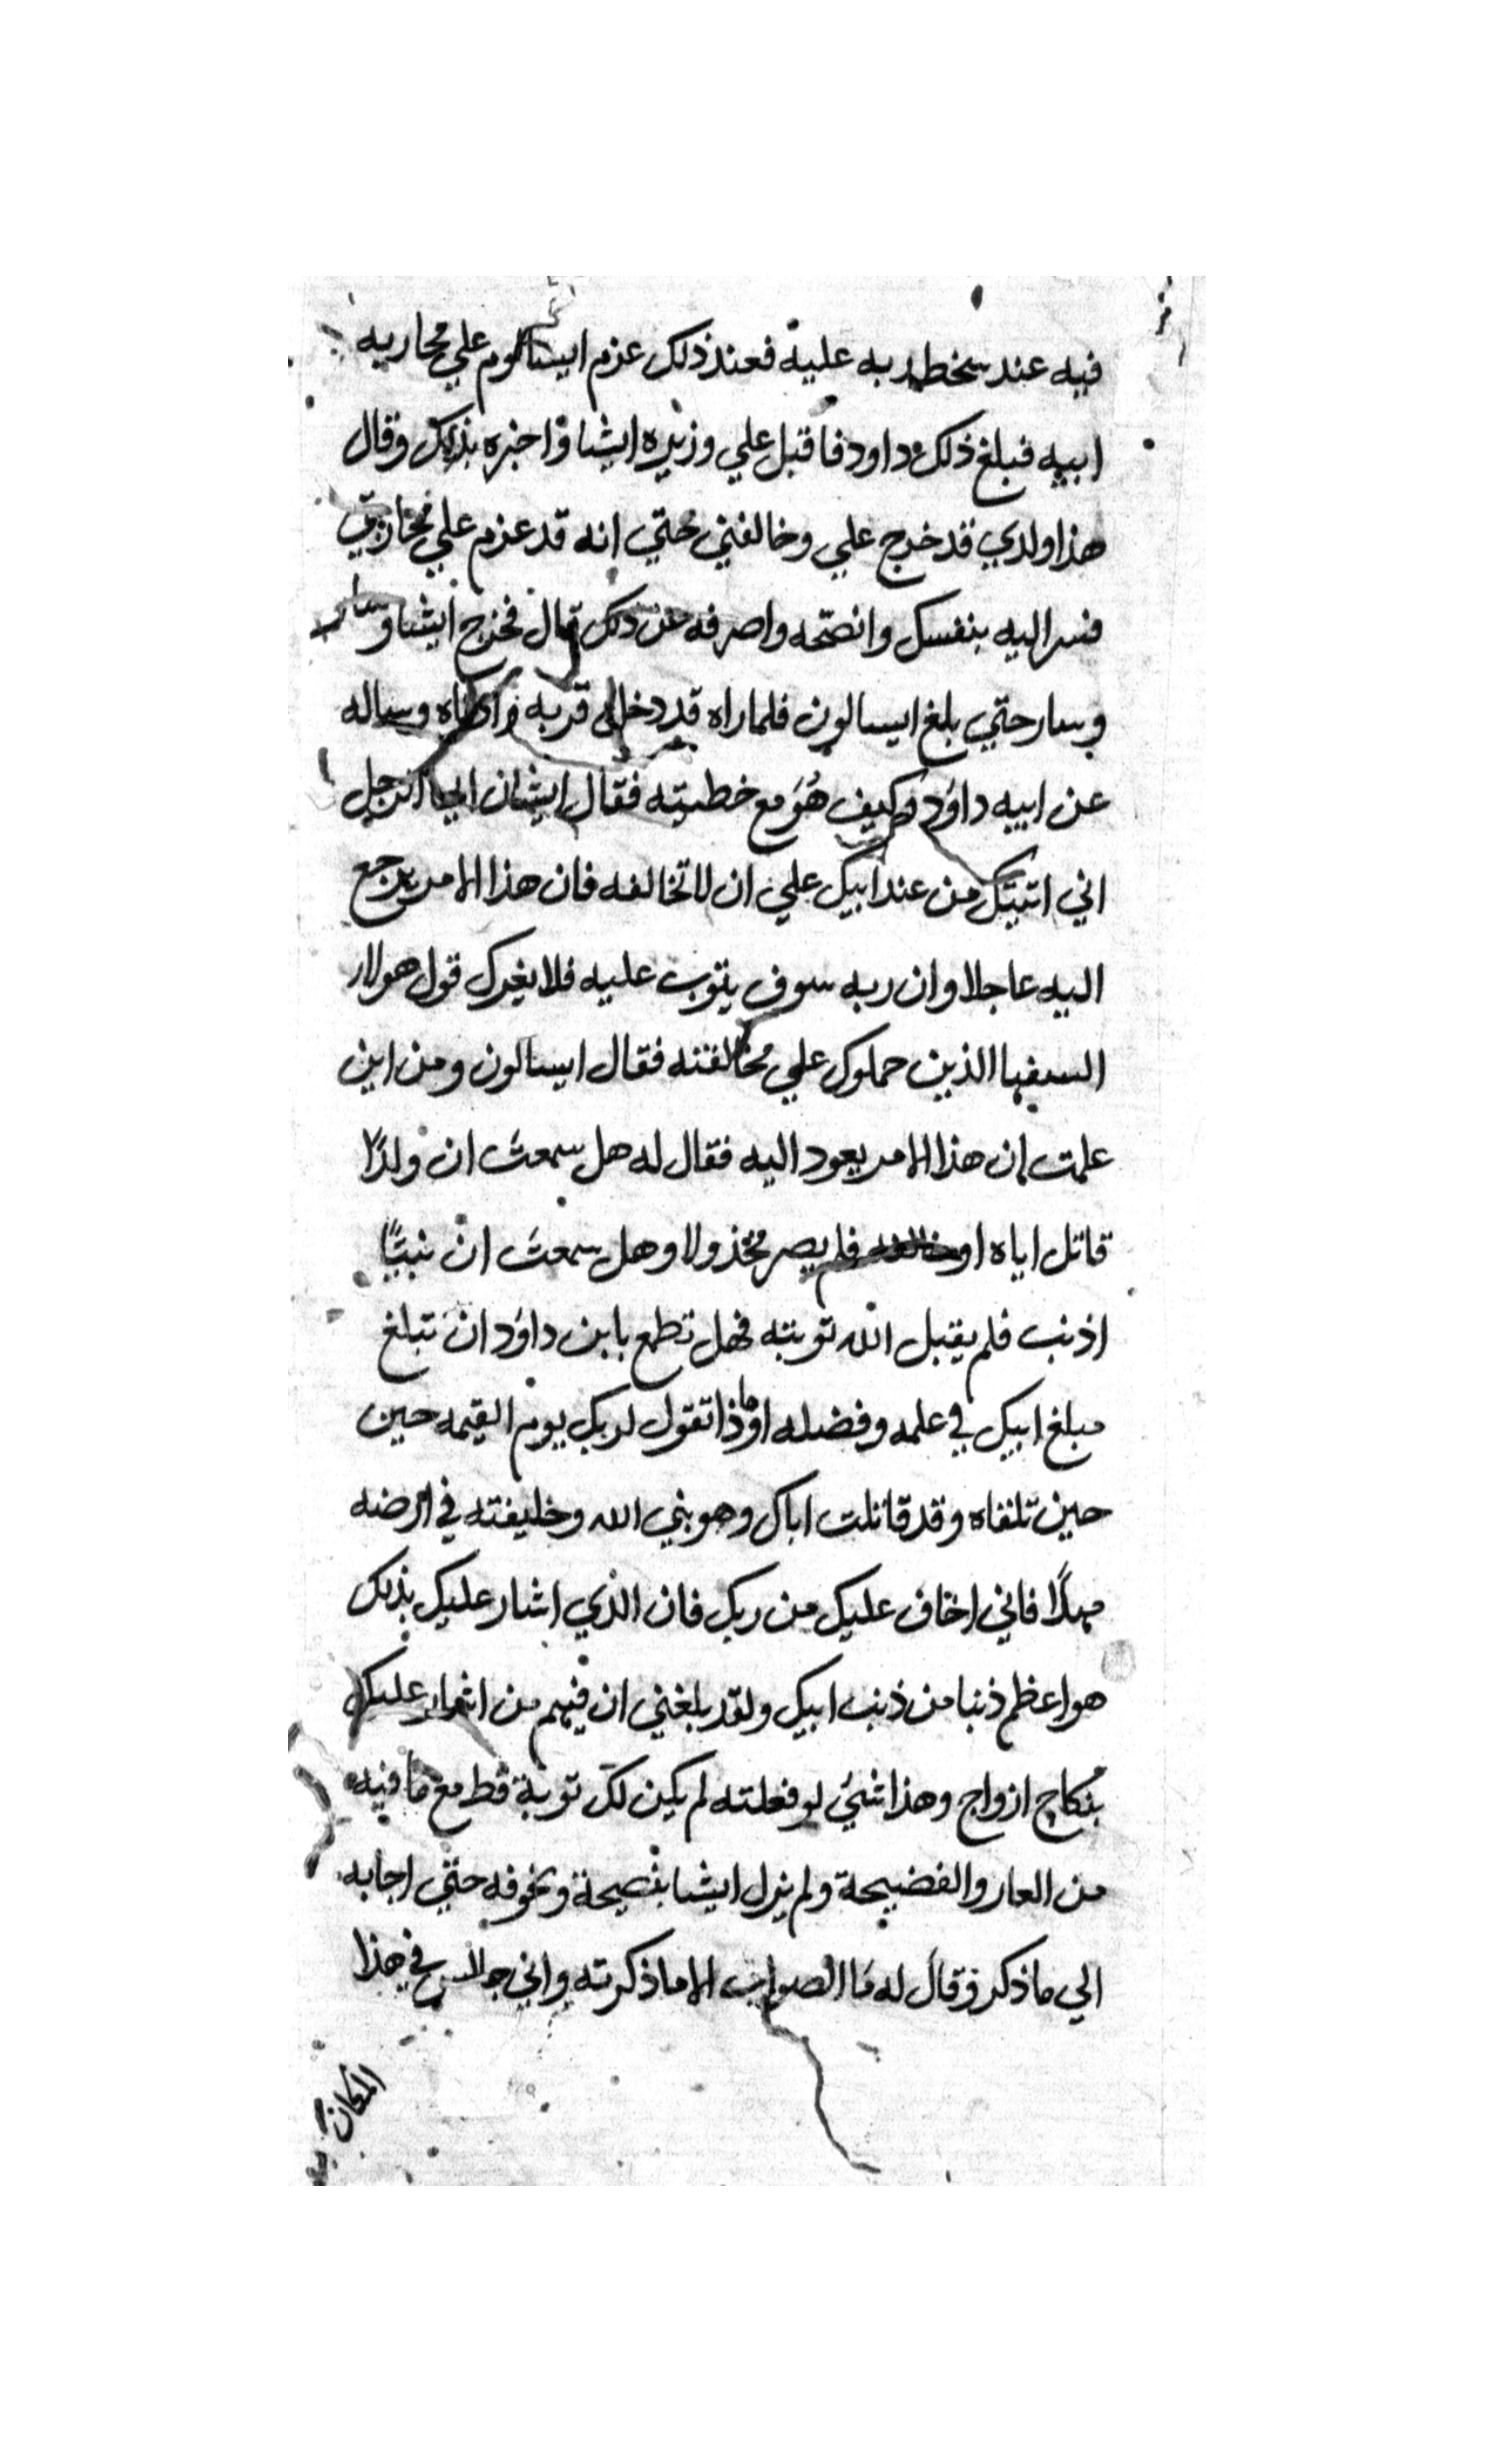 فيه عند سخط ربه عليه فعند ذلك عزم ايسالوم علي محاربه
ابيه فبلغ ذلك داود فاقبل علي وزيره ايشا واخبره بذلك وقال
هذا ولدي قد خرج علي وخالفني حتي انه قد عزم علي محاربتي
فسر اليه بنفسك وانصحه واصرفه عن ذلك قال فخرج ايشا وسار
وسار حتي بلغ ايسالون فلما راه قد دخل قربه وساله
عن ابيه داود وكيف هو مع خطيته فقال ايشان ايها الرجل
اني اتيتك من عند ابيك علي ان لا تخالفه فان هذا الامر يرجع
اليه عاجلا وان ربه سوف يتوب عليه فلا يغرك قول هولاء
السفها الذين حملوك علي مخالفته فقال ايسالون ومن اين
علمت ان هذا الامر يعود اليه فقال له هل سمعت ان ولدًا
قاتل اياه او فلم يصر مخذولا وهل سمعت ان نبيًا
اذنب فلم يقبل الله توبته فهل تطمع يا بن داود ان تبلغ
مبلغ ابيك في علمه وفضله او ماذا تقول لربك يوم القيمه حين
حين تلقاه وقد قاتلت اباك وهو نبي الله وخليفته في ارضه
مهلًا فاني اخاف عليك من ربك فان الذي اشار عليك بذلك
هو اعظم ذنبا من ذنب ابيك ولقد بلغني ان فيهم من اشار عليك
بنكاح ازواج وهذا شيء لو فعلته لم يكن لك توبة قط مع ما فيه
من العار والفضيحة ولم يزل ايشا بنصيحة ويخوفه حتي اجابه
الي ما ذكر وقال له ما الصواب الا ما ذكرته واني جالس في هذا
المكان